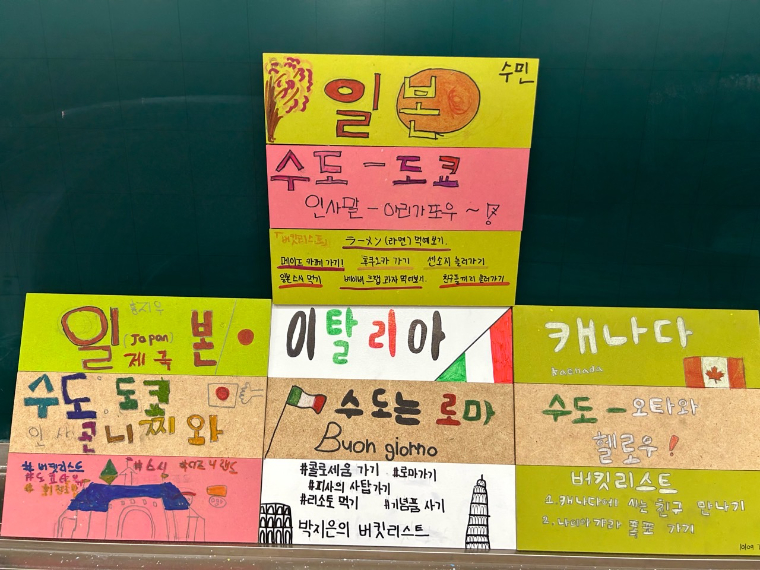 수민
일본
수도 - 도쿄
인사말 - 아리가또우 ~!
「버킷리스트」 ラーメン (라멘) 먹어보기.
메이드 카페 가기! 후쿠오카 가기 센소지 놀러가기
일본 스시 먹기 친구들끼리 놀러가기
일본
(Japan)
제국
수도: 도쿄
인사 곤니찌와
#버킷리스트
#도쿄
#스시
이탈리아
수도는 로마
Buon giorno
#콜로세움 가기 #로마가기
#피사의 사탑가기
#리소토 먹기 #기념품 사기
박지은의 버킷리스트
캐나다
수도 - 오타와
헬로우!
버킷리스트
1. 캐나다에 사는 친구 만나기
2. 나이아가라 폭포 가기